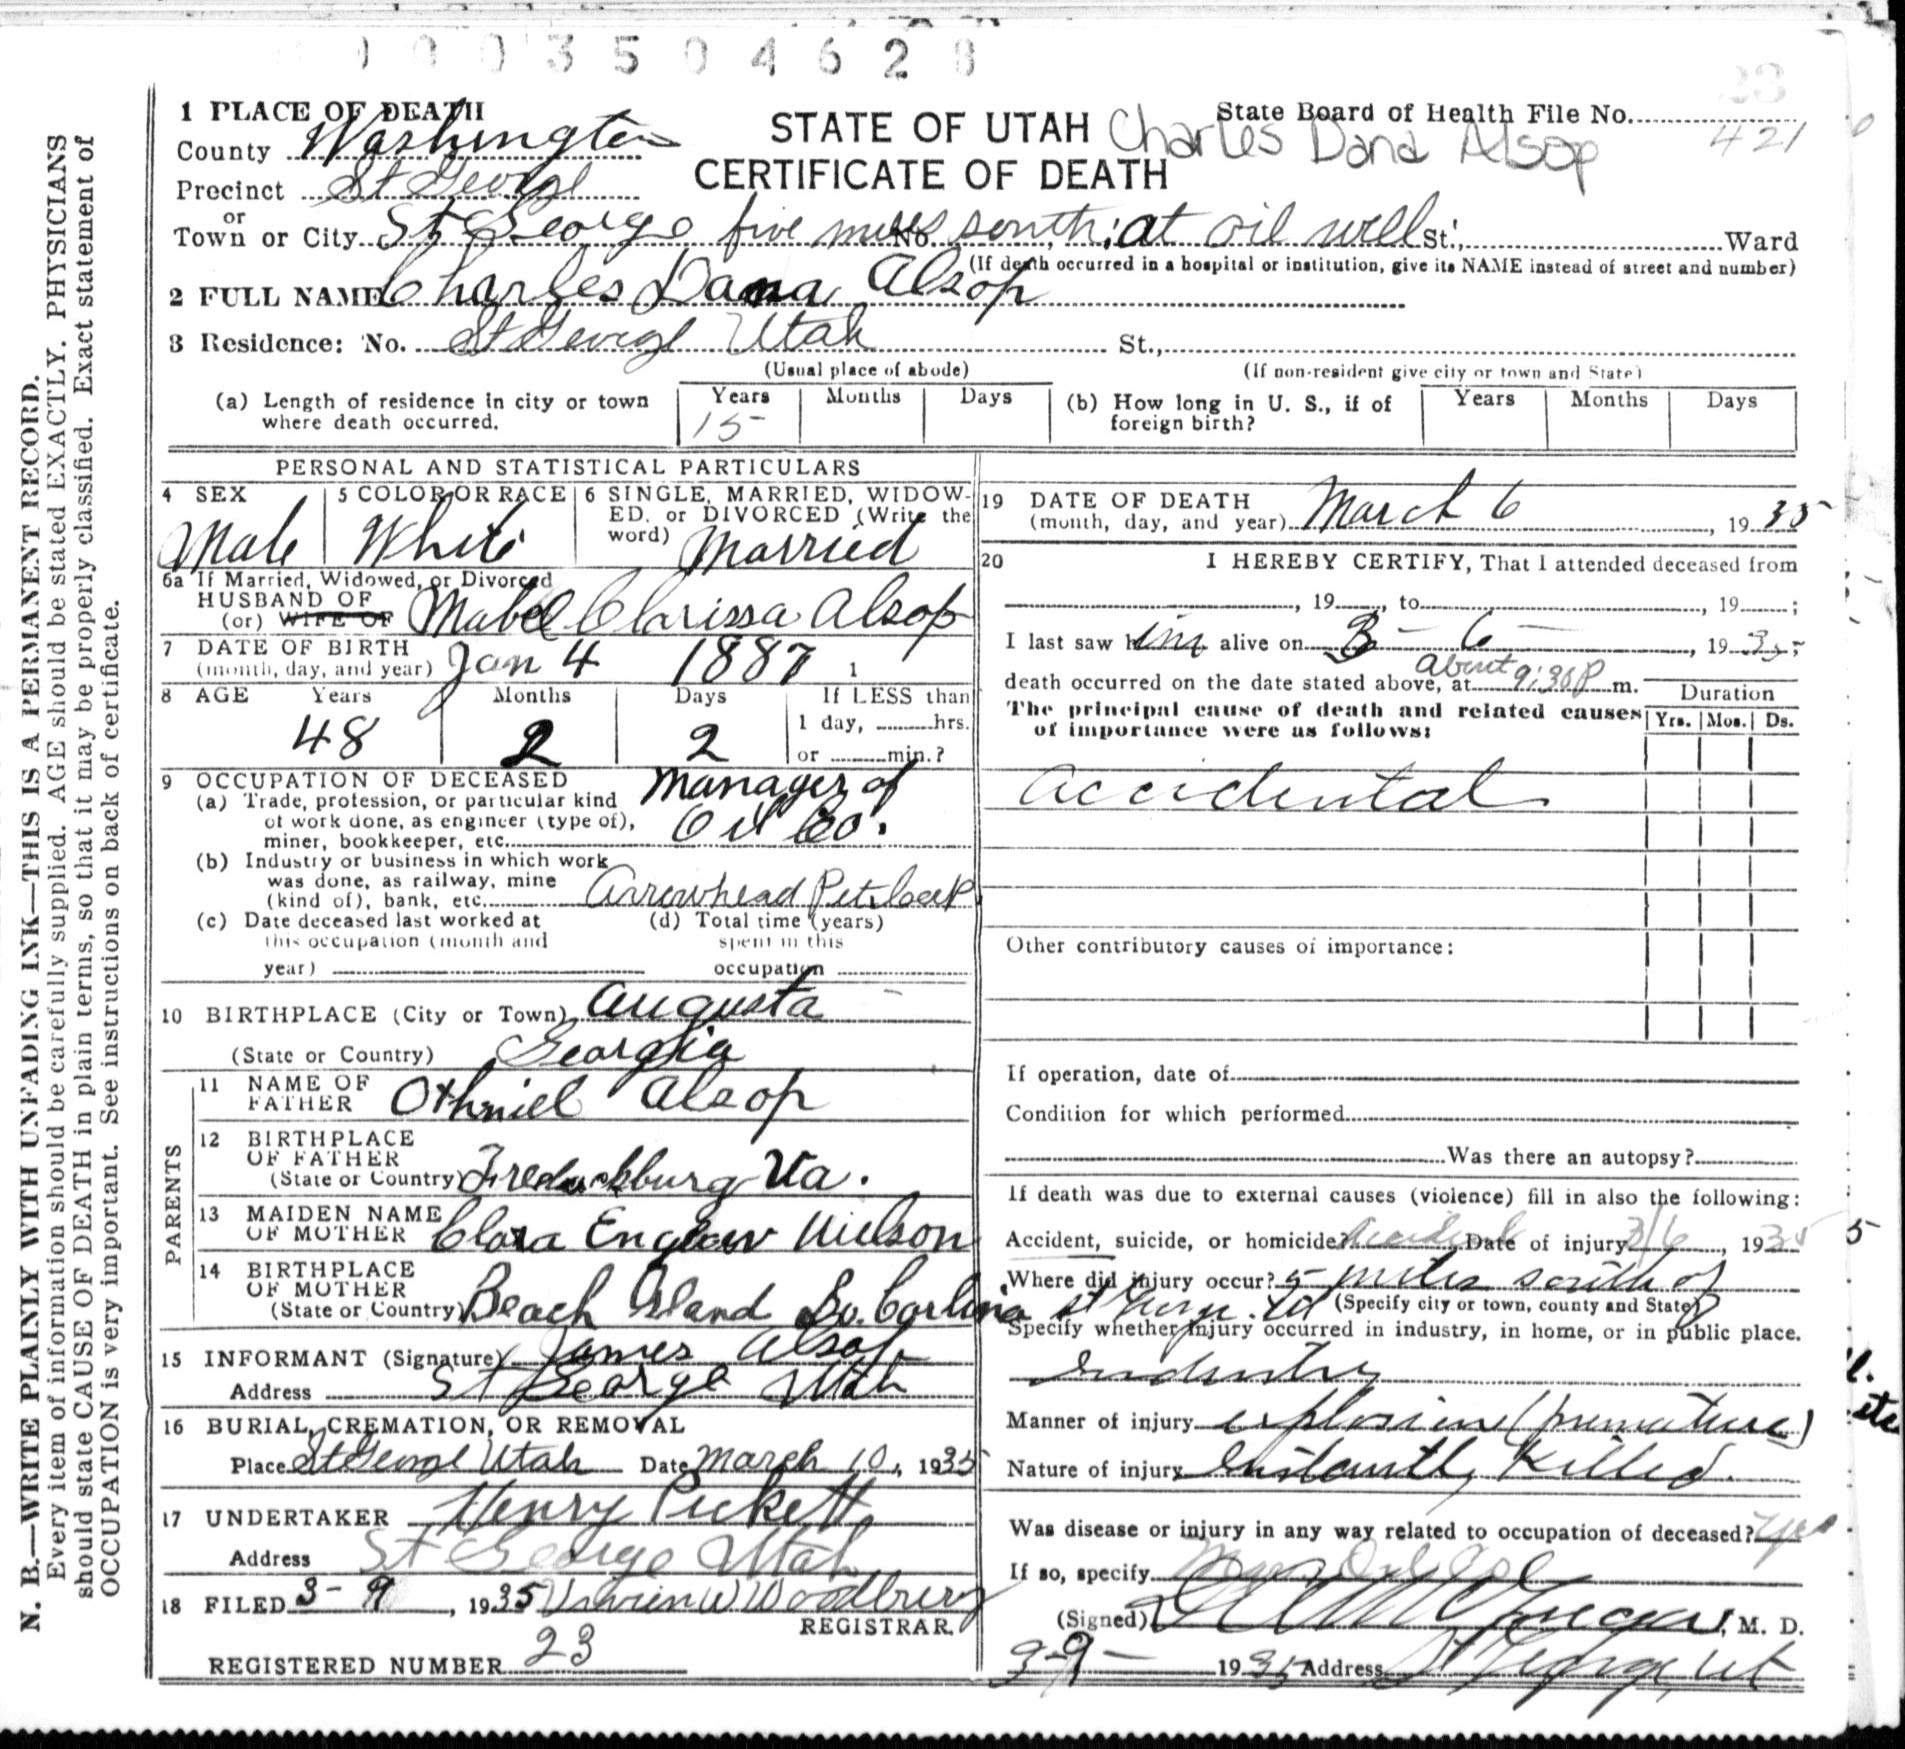 0003504628
1 PLACE OF DEATH
County Washington
Precinct St George
or
Town or City St George five miles No. south; at oil well St., Ward
(If death occurred in a hospital or institution, give its NAME instead of street and number)
STATE OF UTAH
CERTIFICATE OF DEATH
State Board of Health File No.
23
421
Charles Dana Alsop
2 FULL NAME Charles Dana Alsop
3 Residence: No. St George Utah St.,
(Usual place of abode) (If non-resident give city or town and State)
(a) Length of residence in city or town where death occurred. Years Months Days
15
(b) How long in U. S., if of foreign birth? Years Months Days
PERSONAL AND STATISTICAL PARTICULARS
4 SEX
Male
5 COLOR OR RACE
White
6 SINGLE, MARRIED, WIDOW-
ED, or DIVORCED (Write the
word) Married
6a If Married, Widowed, or Divorced
HUSBAND OF
(or) WIFE OF Mabel Clarissa Alsop
7 DATE OF BIRTH
(month, day, and year) Jan 4 1887 1
8 AGE Years Months Days If LESS than
1 day, hrs.
48 2 2 or min.?
9 OCCUPATION OF DECEASED
(a) Trade, profession, or particular kind
of work done, as engineer (type of),
miner, bookkeeper, etc. Manager of
Oil Co.
(b) Industry or business in which work
was done, as railway, mine
(kind of), bank, etc. Arrowhead Pet.
(c) Date deceased last worked at
this occupation (month and
year)
(d) Total time (years)
spent in this
occupation
10 BIRTHPLACE (City or Town) Augusta
(State or Country) Georgia
PARENTS
11 NAME OF
FATHER Othniel Alsop
12 BIRTHPLACE
OF FATHER
(State or Country) Fredericksburg Va.
13 MAIDEN NAME
OF MOTHER Clara Nielson
14 BIRTHPLACE
OF MOTHER
(State or Country) Beach Island So. Carlina
15 INFORMANT (Signature) James Alsop
Address St George Utah
16 BURIAL, CREMATION, OR REMOVAL
Place St George Utah Date March 10, 1935
17 UNDERTAKER Henry Pickett
Address St George Utah
18 FILED 3-9, 1935 Vivien W Woodbury
REGISTRAR.
REGISTERED NUMBER 23
19 DATE OF DEATH
(month, day, and year) March 6, 1935
20 I HEREBY CERTIFY, That I attended deceased from
, 19 , to , 19 ;
I last saw him alive on 3-6-, 1935;
death occurred on the date stated above, at about 9:30 P m.
The principal cause of death and related causes
of importance were as follows:
Duration
Yrs. Mos. Ds.
Accidental
Other contributory causes of importance:
If operation, date of
Condition for which performed
Was there an autopsy?
If death was due to external causes (violence) fill in also the following:
Accident, suicide, or homicide? Accident Date of injury 3/6, 1935
Where did injury occur? 5 miles south of
St George. Ut (Specify city or town, county and State)
Specify whether injury occurred in industry, in home, or in public place.
Industry
Manner of injury explosion (premature)
Nature of injury Instantly Killed.
Was disease or injury in any way related to occupation of deceased? Yes
If so, specify
(Signed) , M. D.
3-9- 1935 Address St George, Ut
N. B.—WRITE PLAINLY WITH UNFADING INK—THIS IS A PERMANENT RECORD.
Every item of information should be carefully supplied. AGE should be stated EXACTLY. PHYSICIANS
should state CAUSE OF DEATH in plain terms, so that it may be properly classified. Exact statement of
OCCUPATION is very important. See instructions on back of certificate.